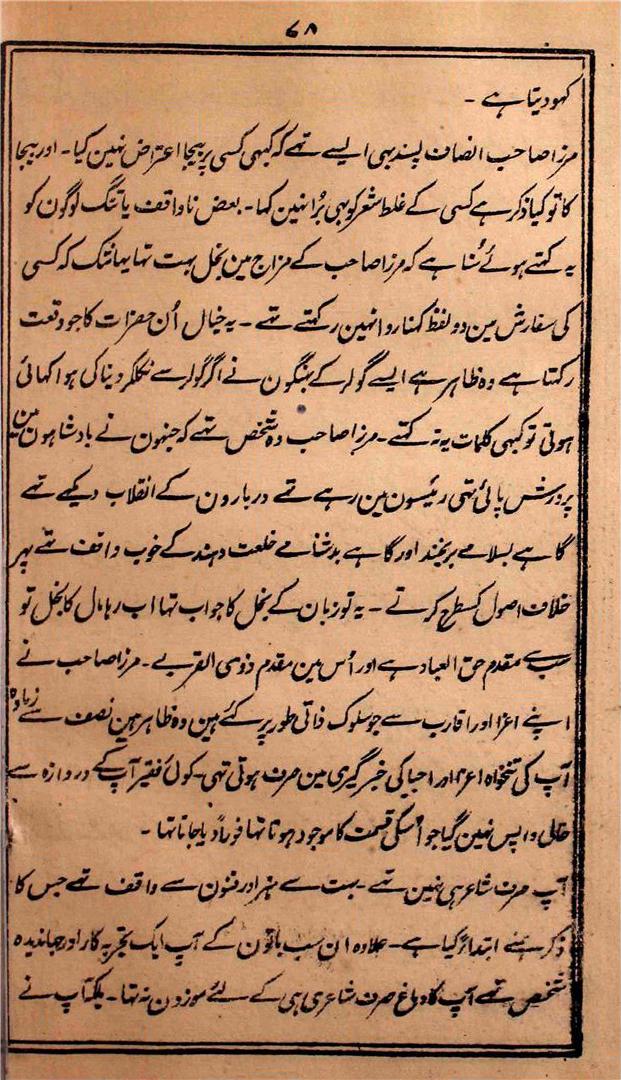 ۷۸
کہو دیتا ہے ۔
مرزا صاحب انصاف پسند بہی ایسے تہے کہ کبہی کسی پر بیجا اعتراض نہین کیا ۔ اور بیجا
کا تو کیا ذکر ہے کسی کے غلط شعر کو بہی بُرا نہین کہا ۔ بعض ناواقف یا تنگ لوگون کو
یہ کہتے ہوئے سُنا ہے کہ مرزا صاحب کے مزاج مین بخل بہت تہا یہانتک کہ کسی
کی سفارش مین دو لفظ کہنا روا نہین رکہتے تہے ۔ یہ خیال اُن حضرات کا جو وقعت
رکہتا ہے وہ ظاہر ہے ایسے گولر کے بہنگون نے اگر گولر سے نکلکر دنیا کی ہوا کہائی
ہوتی تو کبہی کلمات یہ نہ کہتے ۔ مرزا صاحب وہ شخص تہے کہ جنہون نے بادشاہون مین
پرورش پائی تہی رئیسون مین رہے تہے دربارون کے انقلاب دیکہے تہے
گاہے بسلامے برنجند اور گاہے بدشنامے خلعت دہند کے خوب واقف تہے پہر
خلاف اصول کسطح کرتے ۔ یہ تو زبان کے بخل کا جواب تہا اب رہا مال کا بخل تو
سب سے مقدم حق العباد ہے اور اُس مین مقدم ذوی القربے ۔ مرزا صاحب نے
اپنے اعزا اور اقارب سے جو سلوک ذاتی طور پر کئے ہین وہ ظاہر ہین نصف سے زیادہ
آپ کی تنخواہ اعزا اور احبا کی خبر گیری مین صرف ہوتی تہی ۔ کوئی فقیر آپ کے دروازہ سے
خالی واپس نہین گیا جو اُسکی قسمت کا موجود ہوتا تہا فوراً دیا جاتا تہا ۔
آپ صرف شاعر ہی نہین تہے ۔ بہت سے ہنر اور فنون سے واقف تہے جس کا
ذکر ہمنے ابتدا کیا ہے ۔ علاوہ ان سب باتون کے آپ ایک تجربہ کار اور جہاندیدہ
شخص تہے آپ کا دماغ صرف شاعری ہی کے لئے موزون نہ تہا ۔ بلکہ آپ نے